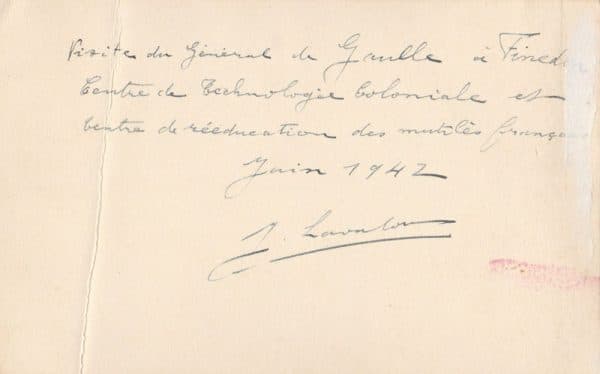 Visite du Général de Gaulle à
Centre de Technologie Coloniale et
Centre de rééducation des mutilés
Juin 1942